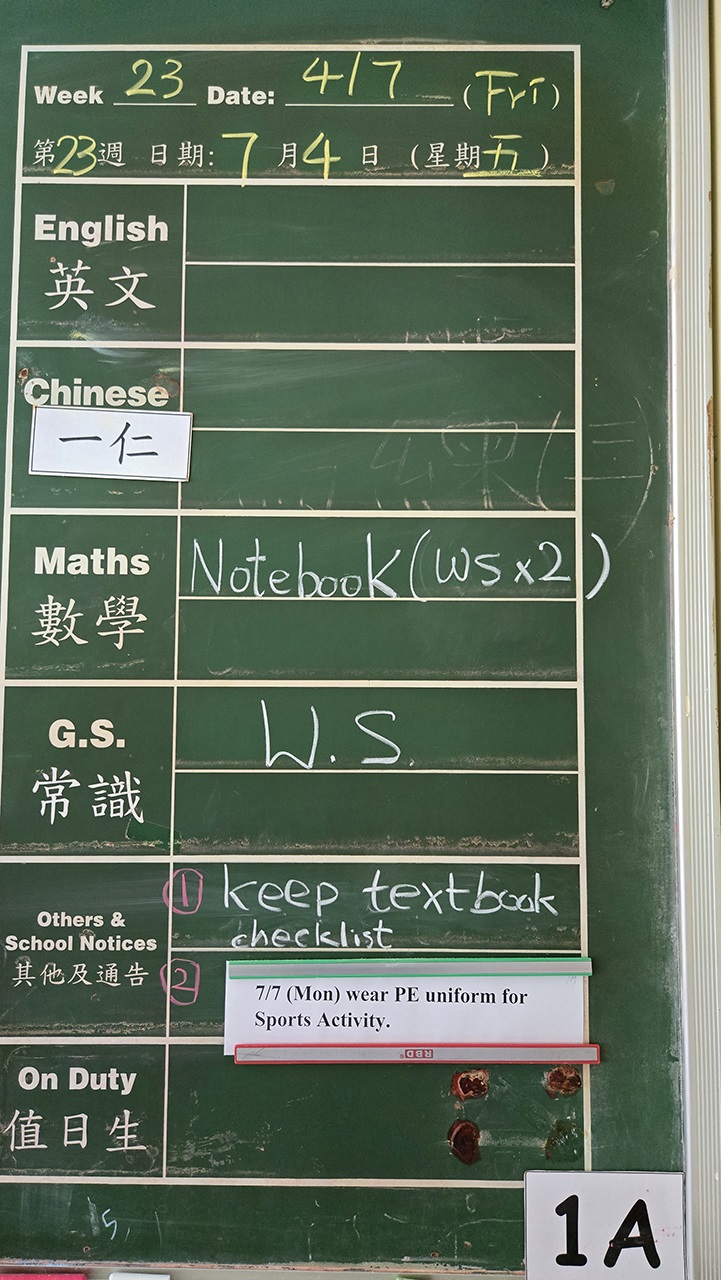 Week 23 Date: 4/7 (Fri)
第23週 日期: 7月4日 (星期五)
English
英文
Chinese
一仁
Maths
Notebook (WS x2)
數學
G.S.
W.S.
常識
① keep textbook
checklist
Others &
School Notices
其他及通告
②
7/7 (Mon) wear PE uniform for
Sports Activity.
RBD
On Duty
值日生
1A